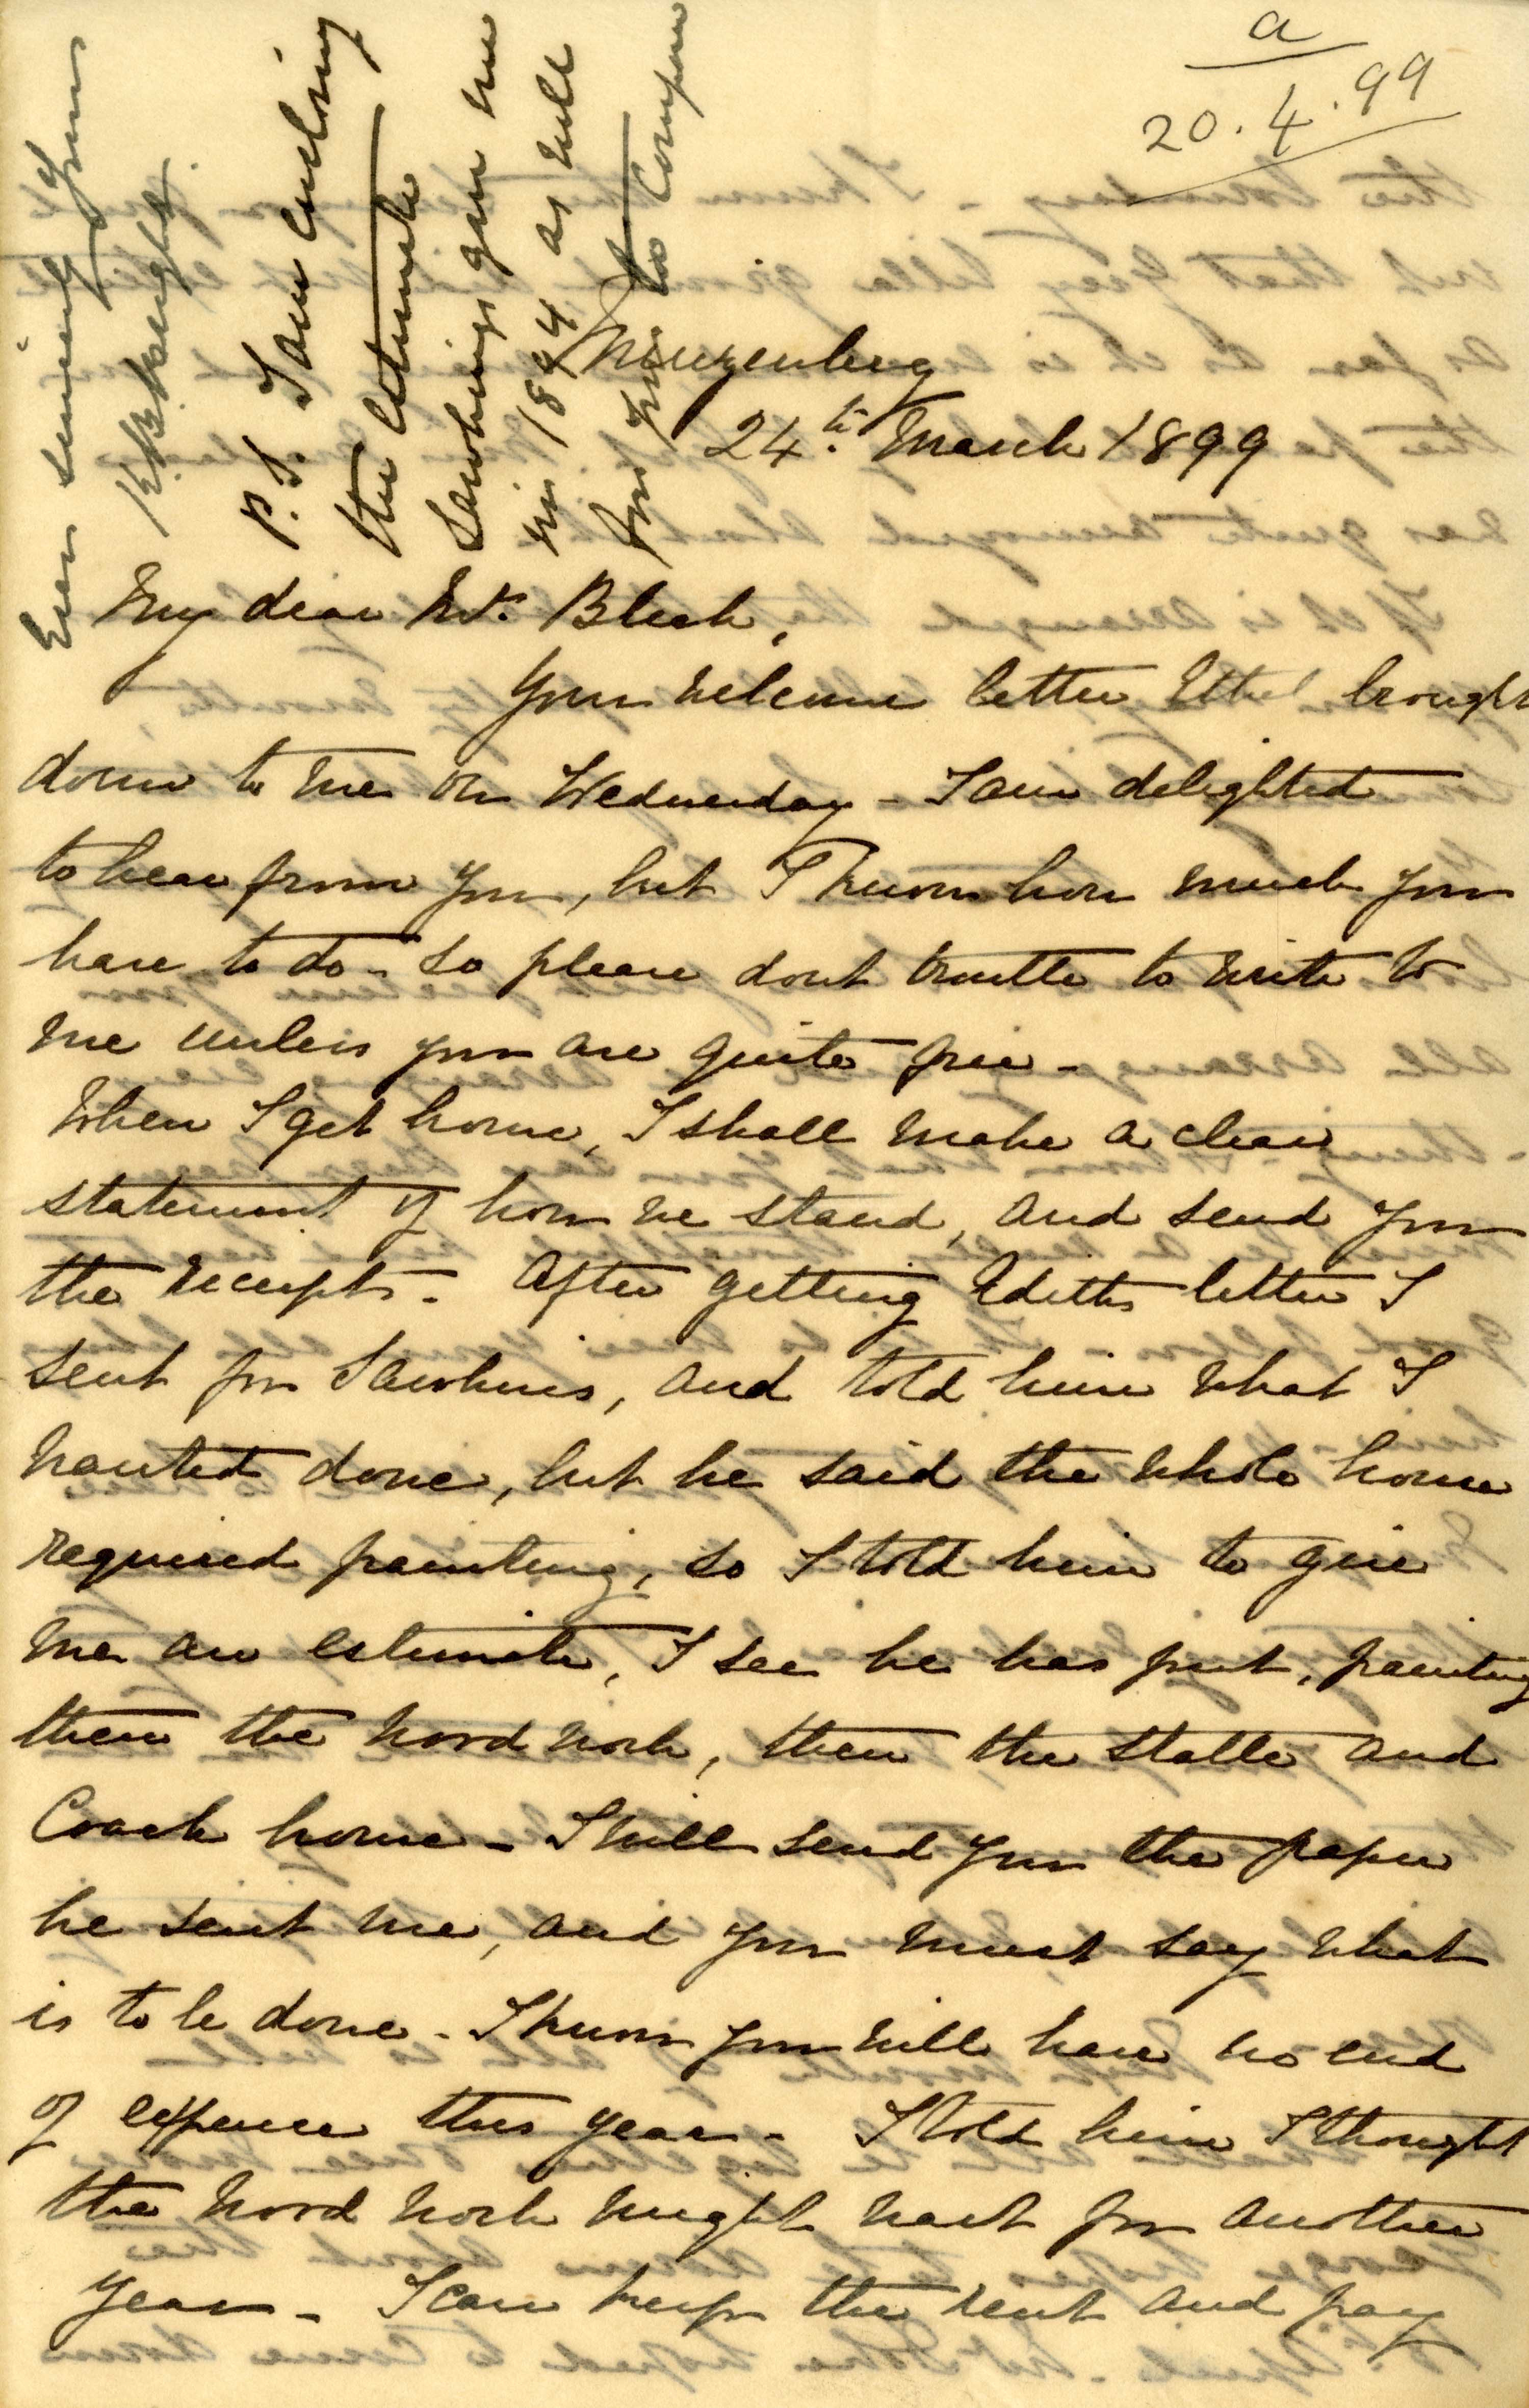 a
20.4.99
Muizenberg
24th March 1899
My dear Mrs. Bleek,
Your welcome letter Ethel brought
down to me on Wednesday - I am delighted
to hear from you, but I know how much you
have to do - so please dont trouble to write to
me unless you are quite free -
When I get home, I shall make a clear
statement of how we stand, and send you
the receipts - After getting Ediths letter I
sent for Sawkins, and told him what I
wanted done, but he said the whole house
required painting, so I told him to give
me an estimate, I see he has put, painting
then the wood work, then the stable and
Coach house - I will send you the paper
he sent me, and you must say what
is to be done - I know you will have no end
of expence this year - I told him I thought
the wood work might wait for another
year - I can keep the rent and pay
Ever sincerely yours
P.S. I am enclosing
the estimate
Sawkins gave me
in 1894 as well
for you to compare